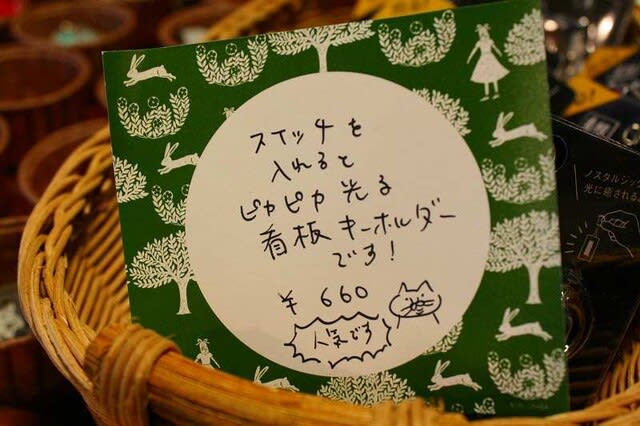 スイッチを
入れると
ピカピカ光る
看板キーホルダー
です!
¥660
人気です
ノスタルジッ
光に癒される